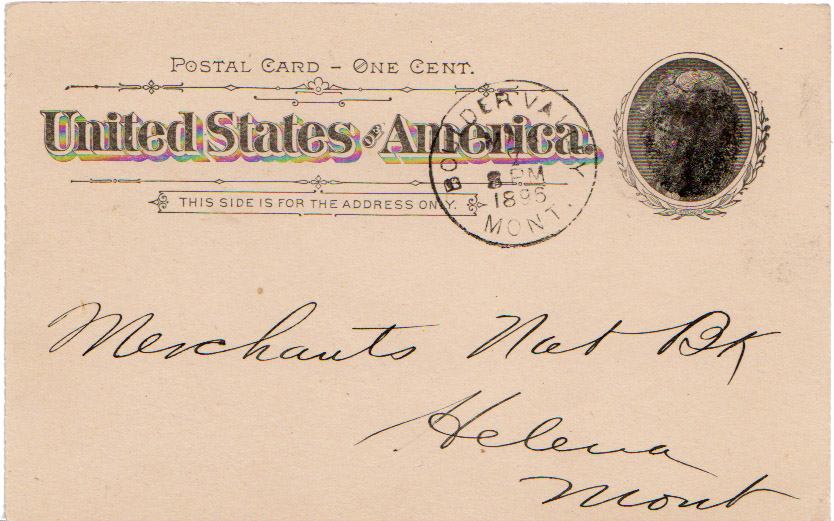 POSTAL CARD - ONE CENT.
United States OF America.
THIS SIDE IS FOR THE ADDRESS ONLY.
BOULDER VALLEY
8 PM
1896
MONT.
Merchants Nat Bk
Helena
Mont